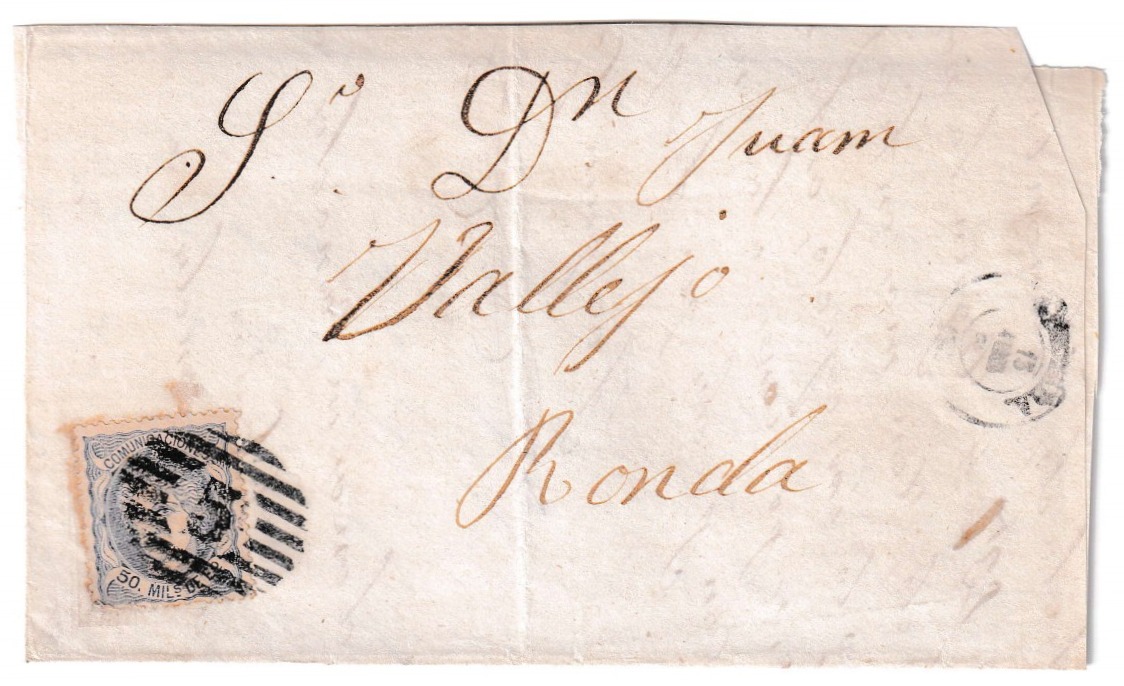 Sr. Dn Juam
Vallejo
Ronda
COMUNICACIONES
50. MILS DE E
13